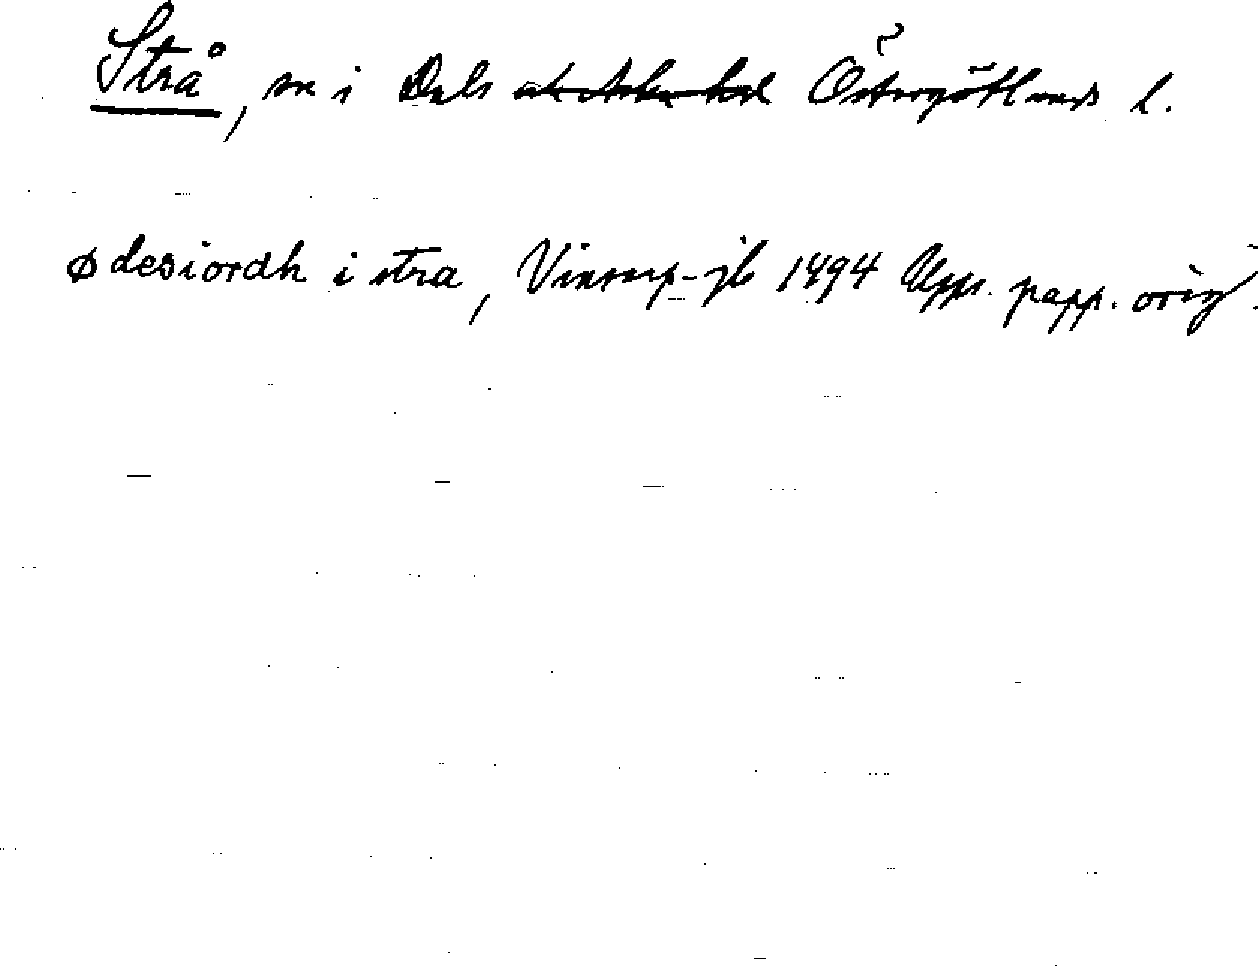 Strå, sn i Dals Östergötlands l.
ødesiordh i stra, Vinstorp-jb 1494 Upps. papp. orig.